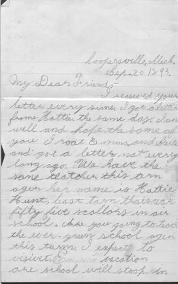 Coopersville, Mich.
Sept. 20, 1893.
My Dear Friend,-
I received your
letter every time. I got a letter
from Hattie the same day. I am
well and hope the same of
you. I wrote
and got a letter not very
long ago. We have the
same teacher this term
again her name is Hattie
Hunt, last term there were
fifty five scollors in our
school. Are you going to have
the ever green school again
this term. I expect to
visit vacation
are school will stop in